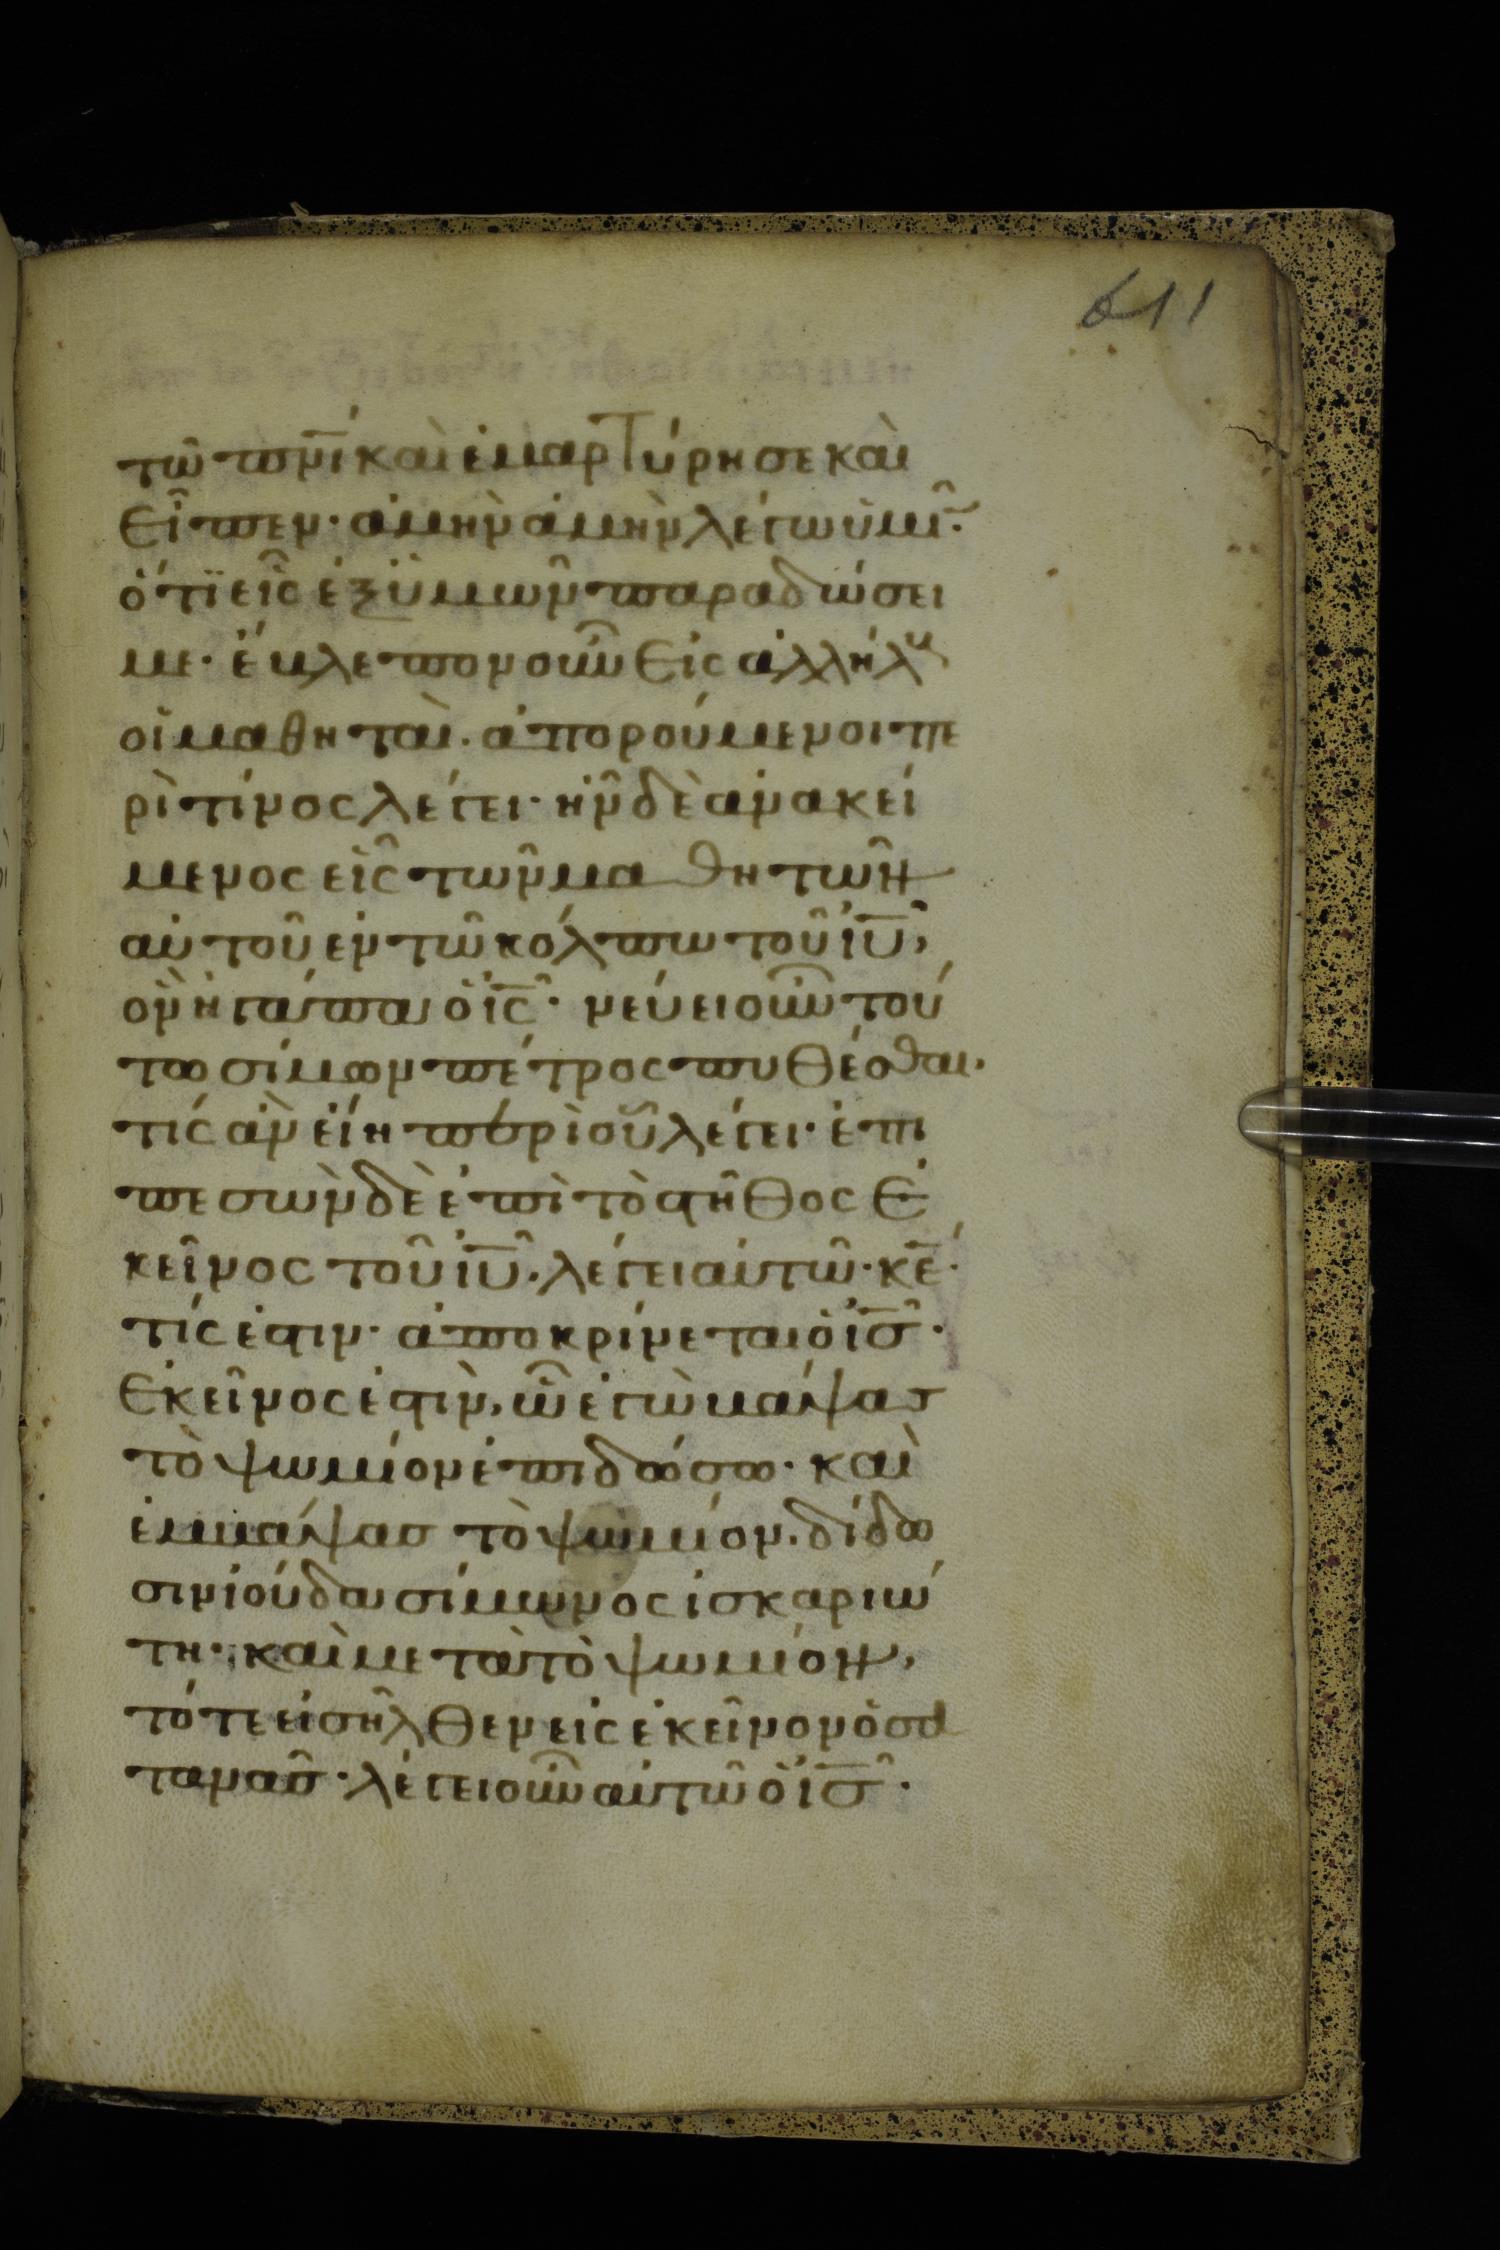 611
τῶ πνῒ καὶ ἐμαρτύρησε καὶ
εἶπεν· ἀμὴν ἀμὴν λέγω ὑμῖν·
ὅτι εἷς ἐξ ὑμῶν παραδώσει
με· ἔβλεπον οὖν εἰς ἀλλήλους
οἱ μαθηταὶ. ἀπορούμενοι πε
ρὶ τίνος λέγει· ἦν δὲ ἀνακεί
μενος εἷς τῶν μαθητῶν
αὐτοῦ ἐν τῶ κόλπω τοῦ ἰῦ,
ὃν ἠγάπα ὁ ἰς· νεύει οὖν τού
τω σίμων πέτρος πυθέσθαι.
τίς ἂν εἴη περὶ οὗ λέγει· ἐπι
πεσὼν δὲ ἐπὶ τὸ στῆθος ἐ
κεῖνος τοῦ ἰῦ. λέγει αὐτῶ· κε·
τίς ἐστιν· ἀποκρίνεται ὁ ἰς·
ἐκεῖνος ἐστὶν, ὧ ἐγὼ βάψας
τὸ ψωμίον ἐπιδώσω· καὶ
ἐμβάψας τὸ ψωμίον. δίδω
σιν ἰούδα σίμωνος ἰσκαριώ
τη· καὶ μετὰ τὸ ψωμίον,
τότε εἰσῆλθεν εἰς ἐκεῖνον ὁ σα
τανᾶς· λέγει οὖν αὐτῶ ὁ ἰς·